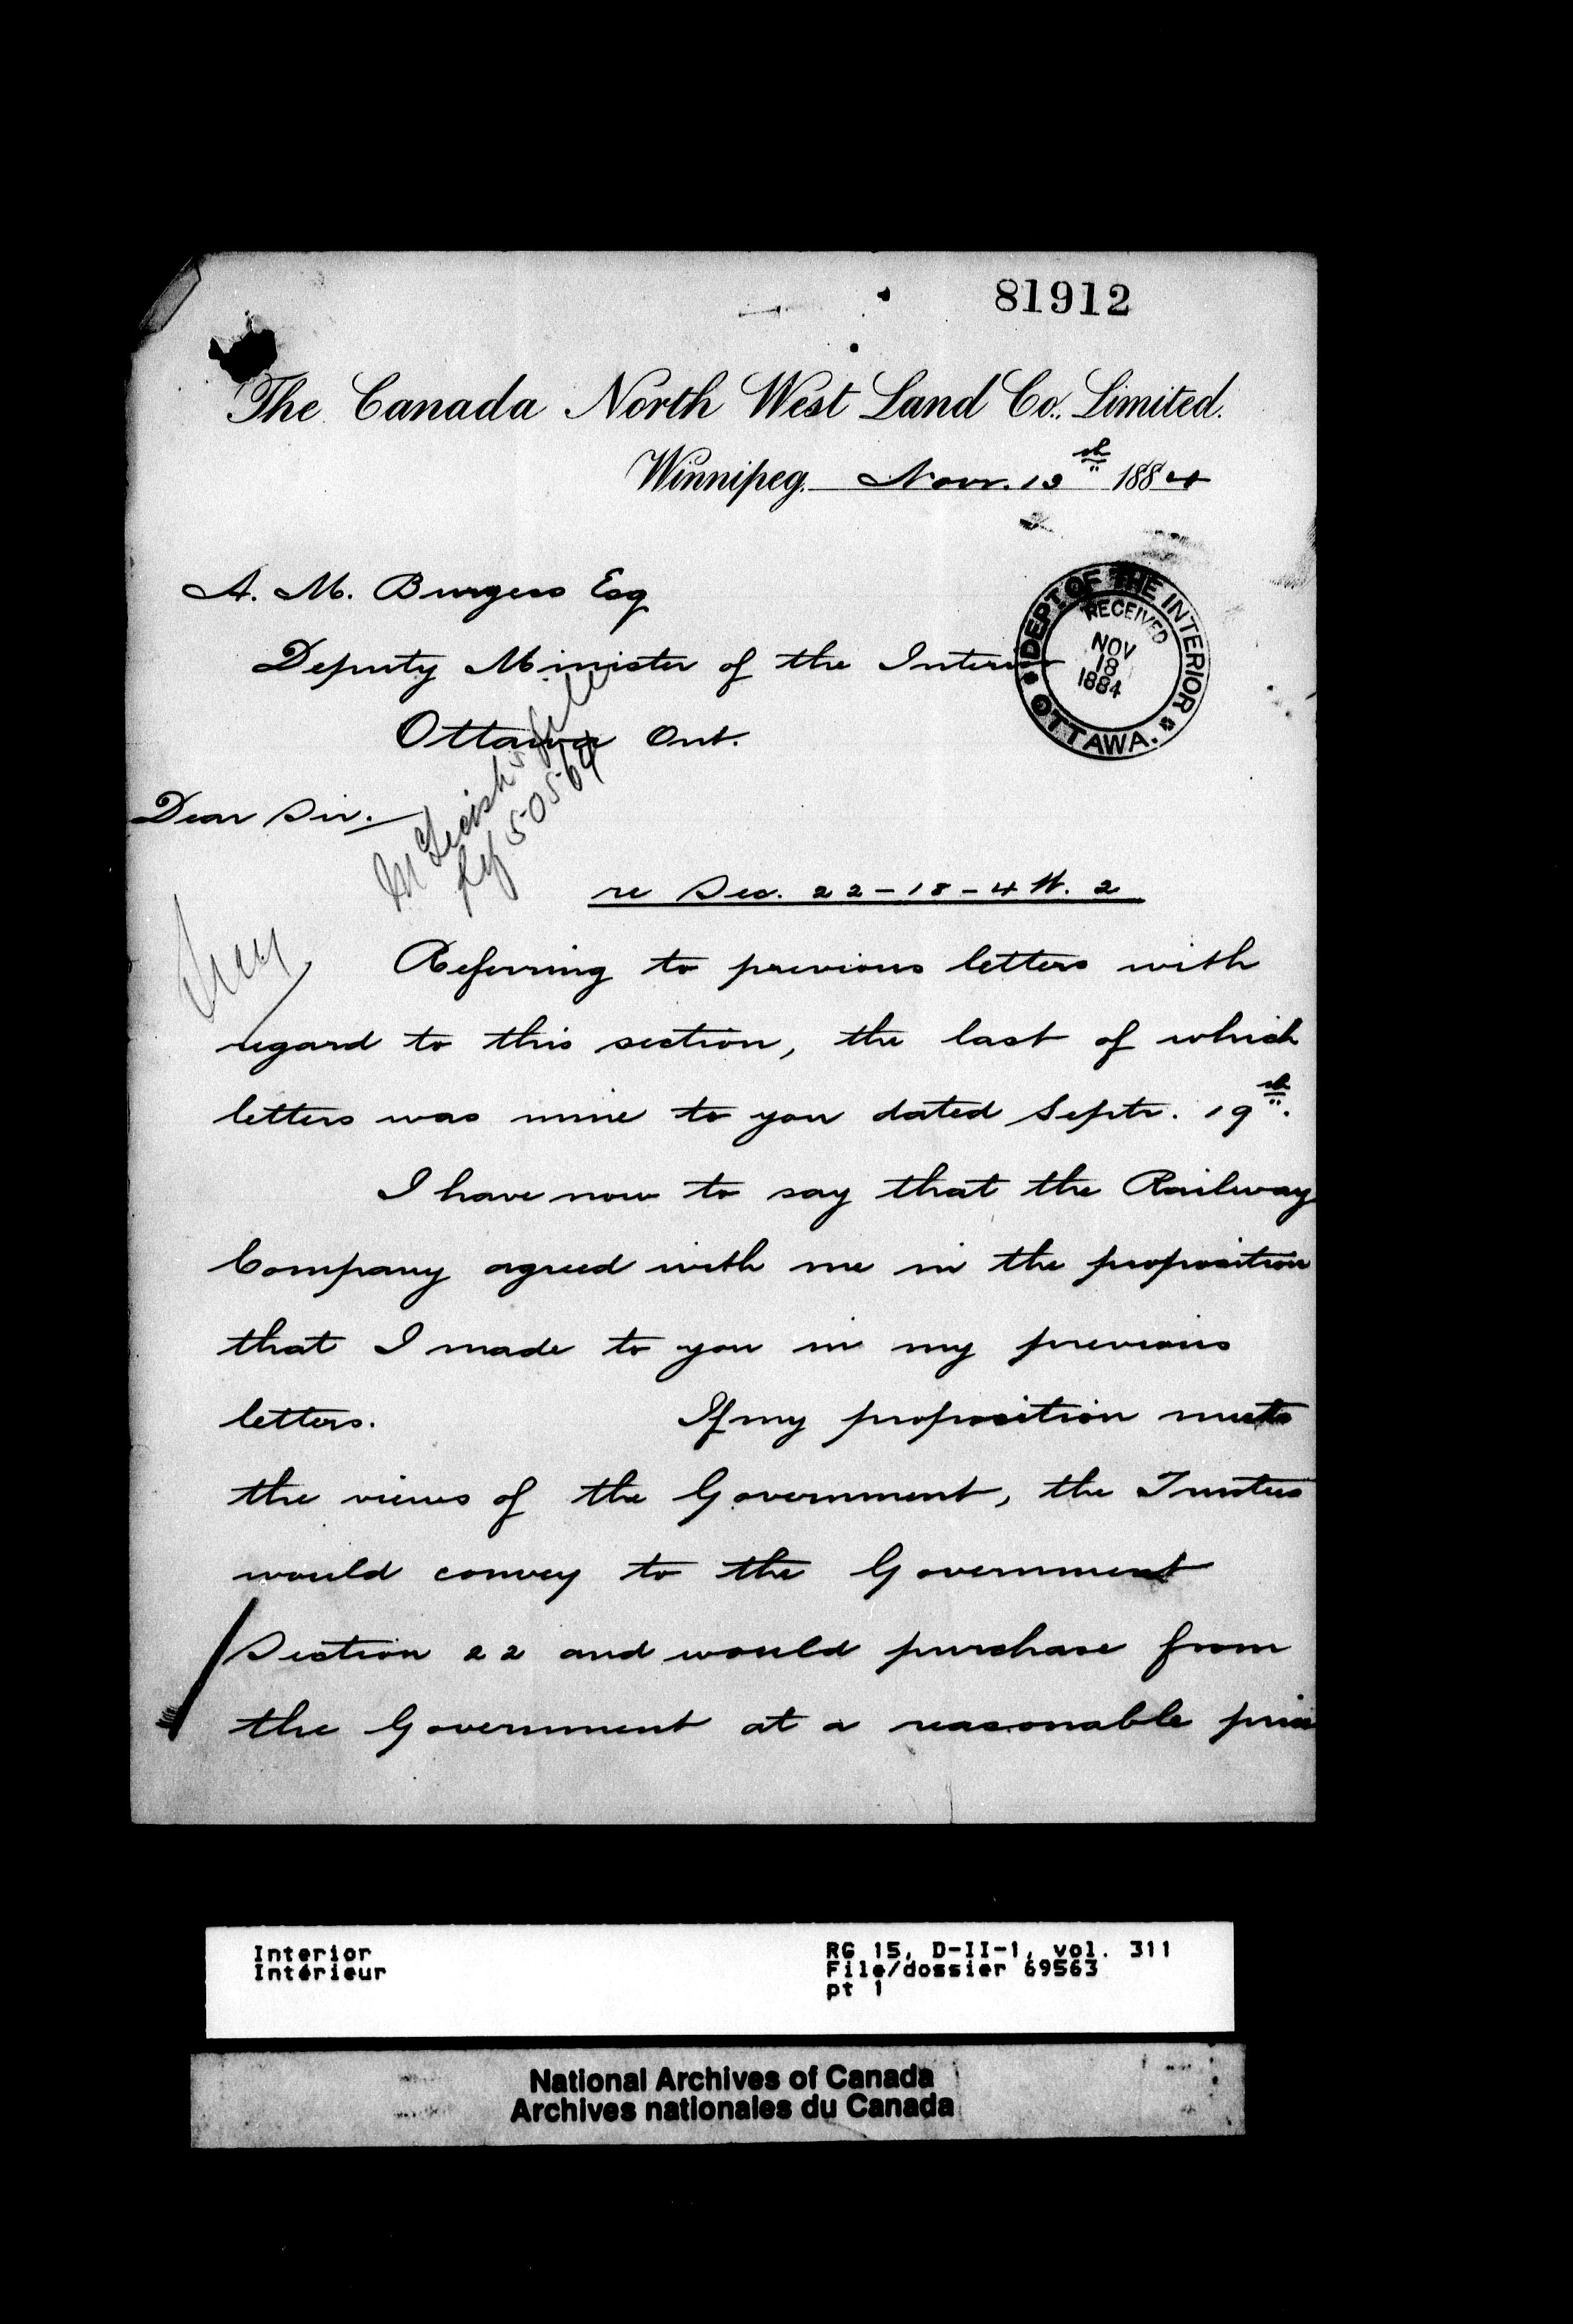 81912
The Canada North West Land Co. Limited.
Winnipeg. Novr. 13th 1884
A. M. Burgess Esq
Deputy Minister of the Interior
Ottawa Ont.
DEPT. OF THE INTERIOR
RECEIVED
NOV
18
1884
OTTAWA.
Dear Sir.
Ref 50564
re Sec. 22-18-4 W. 2
Referring to previous letters with
regard to this section, the last of which
letters was mine to you dated Septr. 19th.
I have now to say that the Railway
Company agreed with me in the proposition
that I made to you in my previous
letters. If my proposition meets
the views of the Government, the Trustees
would convey to the Government
Section 22 and would purchase from
the Government at a reasonable price
Interior
Intérieur
RG 15, D-II-1, vol. 311
File/dossier 69563
pt 1
National Archives of Canada
Archives nationales du Canada